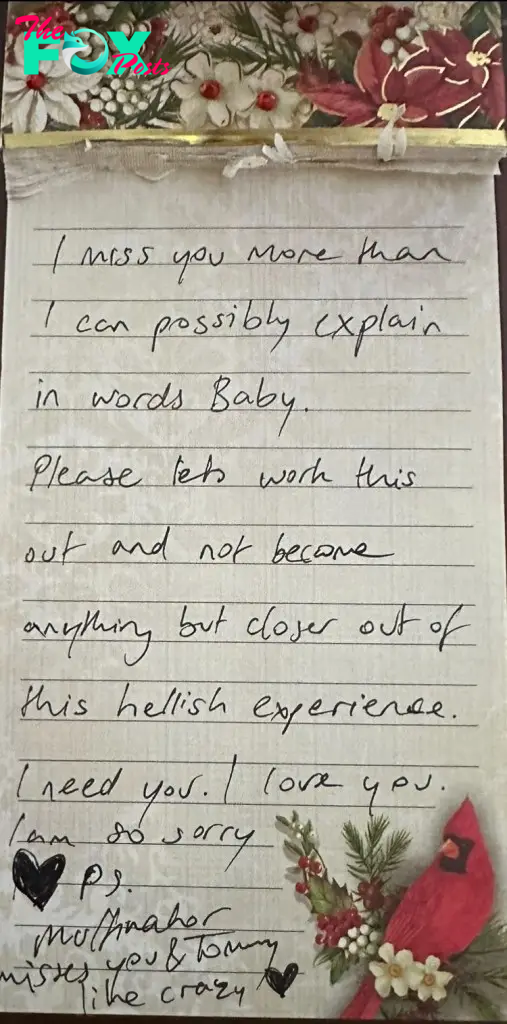 The
FOX
Posts
I miss you more than
I can possibly explain
in words Baby.
Please lets work this
out and not become
anything but closer out of
this hellish experience.
I need you. I love you.
I am so sorry
ps.
misses you & Tommy
like crazy